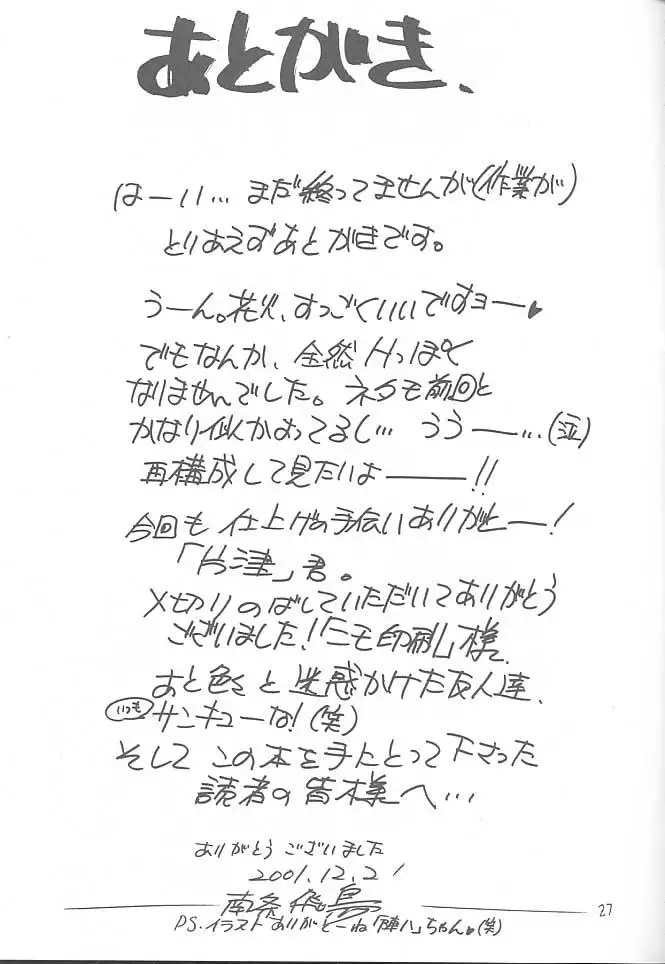 あとがき、
はーい… まだ終ってませんが(作業が)
とりあえずあとがきです。
うーん。花火、すっごくいいですョー♥
でもなんか、全然Hっぽく
なりませんでした。ネタも前回と
かなり似かよってるし… うう──…(泣)
再構成して見たいよ───!!
今回も 仕上げの手伝いありがとー!
「片津」君。
〆切りのばしていただいてありがとう
ございました!「ニモ印刷」様。
あと色々と迷惑かけた友人達、
いつもサンキューな!(笑)
そして この本を手にとって下さった
読者の皆様へ…
ありがとう ございました
2001.12.21
南条飛鳥
27
PS.イラスト ありがとーね「陣八」ちゃん♥(笑)